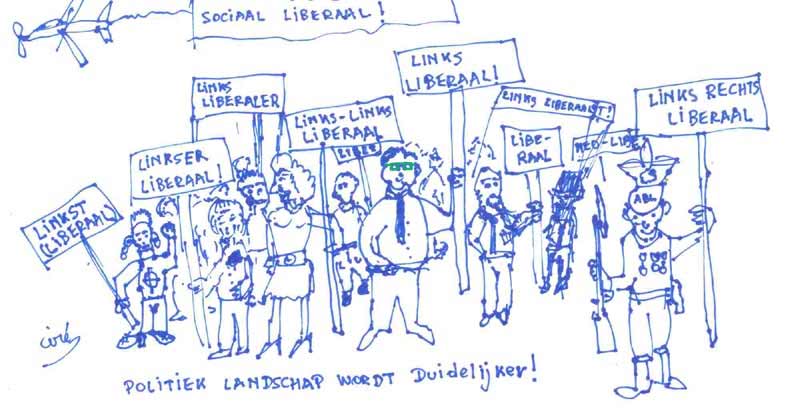 SOCIAAL LIBERAAL!
LINKS
LIBERAAL!
LINKS
LIBERALER
LINKS-LINKS
LIBERAAL
LINKS LIBERAALST!
LINKS RECHTS
LIBERAAL
LINKSER
LIBERAAL!
LIBE-
RAAL
NEO-LIBE
LIBER
LINKST
(LIBERAAL)
ABL
POLITIEK LANDSCHAP WORDT Duidelijker!